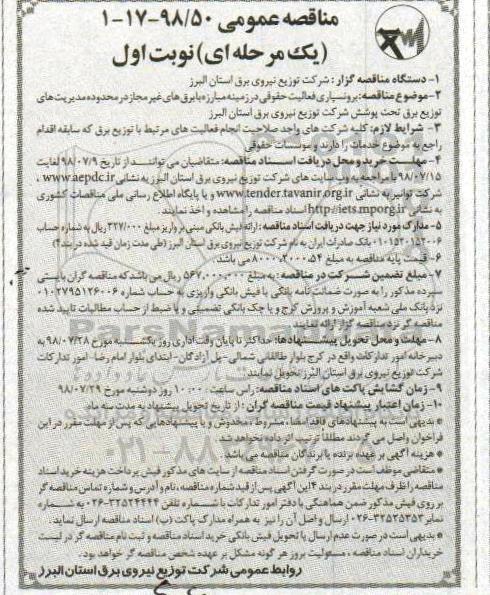 مناقصه عمومی ۹۸/۵۰-۱۷-۱
(یک مرحله ای) نوبت اول
۱- دستگاه مناقصه گزار: شرکت توزیع نیروی برق استان البرز
۲- موضوع مناقصه: برونسپاری فعالیت حقوقی در زمینه مبارزه با برق های غیر مجاز در محدوده مدیریت های
توزیع برق تحت پوشش شرکت توزیع نیروی برق استان البرز
۳- شرایط لازم: کلیه شرکت های واجد صلاحیت انجام فعالیت های مرتبط با توزیع برق که سابقه اقدام
راجع به موضوع خدمات را دارند و موسسات حقوقی
۴- مهلت خرید و محل دریافت اسناد مناقصه: متقاضیان می توانند از تاریخ ۹۸/۰۷/۹ لغایت
۹۸/۰۷/۱۵ با مراجعه به وب سایت های شرکت توزیع نیروی برق استان البرز به نشانی www.aepdc.ir ،
شرکت توانیر به نشانی www.tender.tavanir.org.ir و یا پایگاه اطلاع رسانی ملی مناقصات کشوری
به نشانی http://iets.mporg.ir اسناد مناقصه را مشاهده و اخذ نمایند.
۵- مدارک مورد نیاز جهت دریافت اسناد مناقصه: ارائه فیش بانکی مبنی بر واریز مبلغ ۳۲۷/۰۰۰ ریال به شماره حساب
۰۱۰۱۵۲۰۱۵۲۰۰۶ بانک صادرات ایران به نام شرکت توزیع نیروی برق استان البرز (طی مدت زمان قید شده در بند ۴)
۶- قیمت پایه مناقصه به مبلغ می باشد.
۷- مبلغ تضمین شرکت در مناقصه: به مبلغ ۵۶۷,۰۰۰,۰۰۰ ریال می باشد که مناقصه گران بایستی
سپرده مذکور را به صورت ضمانت نامه بانکی یا فیش بانکی واریزی به حساب شماره ۰۱۰۲۷۹۵۱۲۶۰۰۶
نزد بانک ملی شعبه آموزش و پرورش کرج و یا چک بانکی تضمینی و یا ضبط از حساب مطالبات تایید شده
مناقصه گر نزد مناقصه گزار ارائه نمایند.
۸- مهلت و محل تحویل پیشنهادها: حداکثر تا پایان وقت اداری روز یکشنبه مورخ ۹۸/۰۷/۲۸ به
دبیرخانه امور تدارکات واقع در کرج بلوار طالقانی شمالی- پل آزادگان- ابتدای بلوار امام رضا- امور تدارکات
شرکت توزیع نیروی برق استان البرز تحویل نمایند.
۹- زمان گشایش پاکت های اسناد مناقصه: راس ساعت ۱۰:۰۰ روز دوشنبه مورخ ۹۸/۰۷/۲۹
۱۰- زمان اعتبار پیشنهاد قیمت مناقصه گران: از تاریخ تحویل پیشنهاد به مدت سه ماه
* بدیهی است به پیشنهادهای فاقد امضا، مشروط، مخدوش و یا پیشنهادهایی که پس از مهلت مقرر در این
فراخوان واصل می گردند مطلقا ترتیب اثر داده نخواهد شد.
* هزینه آگهی بر عهده برنده یا برندگان مناقصه می باشد.
* متقاضی موظف است در صورت گرفتن اسناد مناقصه از سایت های مذکور فیش پرداخت هزینه خرید اسناد
مناقصه را ظرف مهلت مقرر در بند ۴ این آگهی پس از قید شماره مناقصه، نام و آدرس و شماره تماس مناقصه گر
بر روی فیش مذکور ضمن هماهنگی با دفتر امور تدارکات با شماره تلفن ۳۲۵۲۴۴۴۴-۰۲۶ به شماره
نمابر ۳۲۵۲۵۳۵۲-۰۲۶ ارسال و اصل آن را نیز به همراه مدارک پاکت (ب) اسناد مناقصه ارسال نماید.
* بدیهی است در صورت عدم ارسال یا تحویل فیش بانکی خرید اسناد مناقصه و ثبت نام مناقصه گر در لیست
خریداران اسناد مناقصه، مسئولیت بروز هر گونه مشکل بر عهده شخص مناقصه گر خواهد بود.
روابط عمومی شرکت توزیع نیروی برق استان البرز
ParsNamadData